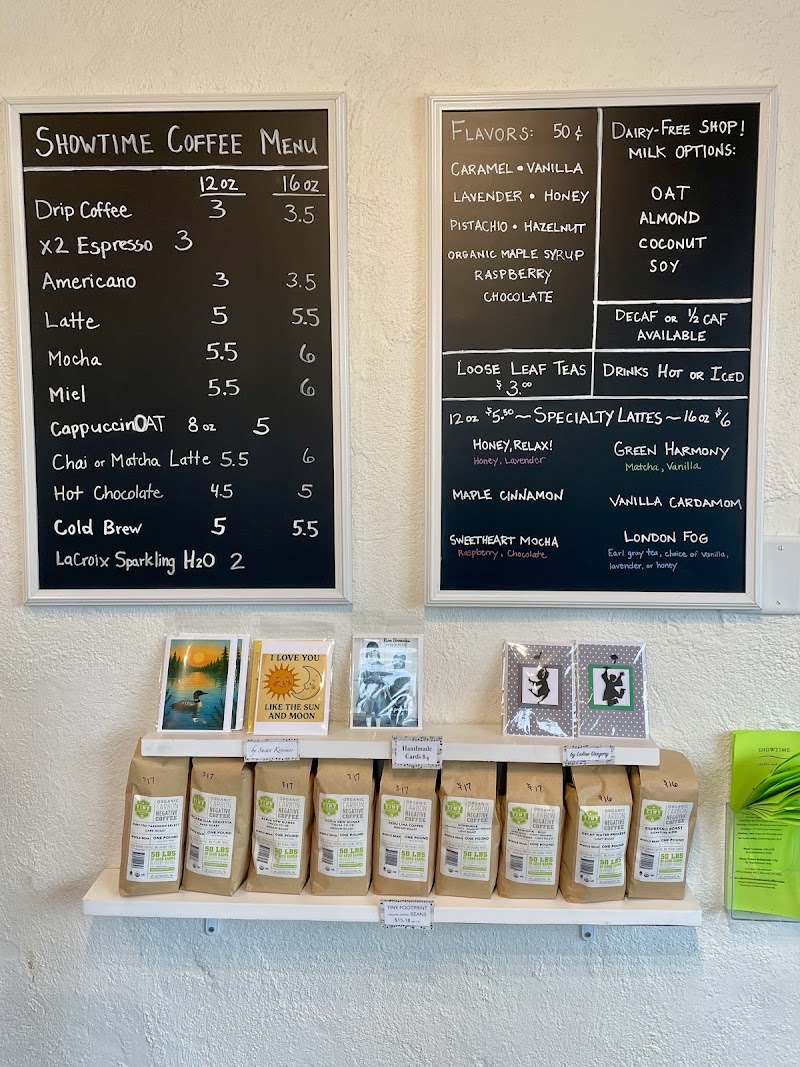 SHOWTIME COFFEE MENU
12 oz 16 oz
Drip Coffee 3 3.5
x2 Espresso 3
Americano 3 3.5
Latte 5 5.5
Mocha 5.5 6
Miel 5.5 6
CappuccinOAT 8 oz 5
Chai or Matcha Latte 5.5 6
Hot Chocolate 4.5 5
Cold Brew 5 5.5
LaCroix Sparkling H2O 2
FLAVORS: 50 ¢
CARAMEL • VANILLA
LAVENDER • HONEY
PISTACHIO • HAZELNUT
ORGANIC MAPLE SYRUP
RASPBERRY
CHOCOLATE
DAIRY-FREE SHOP!
MILK OPTIONS:
OAT
ALMOND
COCONUT
SOY
DECAF OR 1/2 CAF
AVAILABLE
LOOSE LEAF TEAS
$3.00
DRINKS HOT OR ICED
12 oz $5.50 ~ SPECIALTY LATTES ~ 16 oz $6
HONEY, RELAX!
Honey, Lavender
MAPLE CINNAMON
SWEETHEART MOCHA
Raspberry, Chocolate
GREEN HARMONY
Matcha, Vanilla
VANILLA CARDAMOM
LONDON FOG
Earl gray tea, choice of vanilla,
lavender, or honey
I LOVE YOU
LIKE THE SUN
AND MOON
Handmade
Cards
$17
$17
$17
$17
$17
$17
$17
$16
$16
ORGANIC
CARBON
NEGATIVE
COFFEE
ONE POUND
50 LBS
TINY FOOTPRINT
BEANS
SHOWTIME